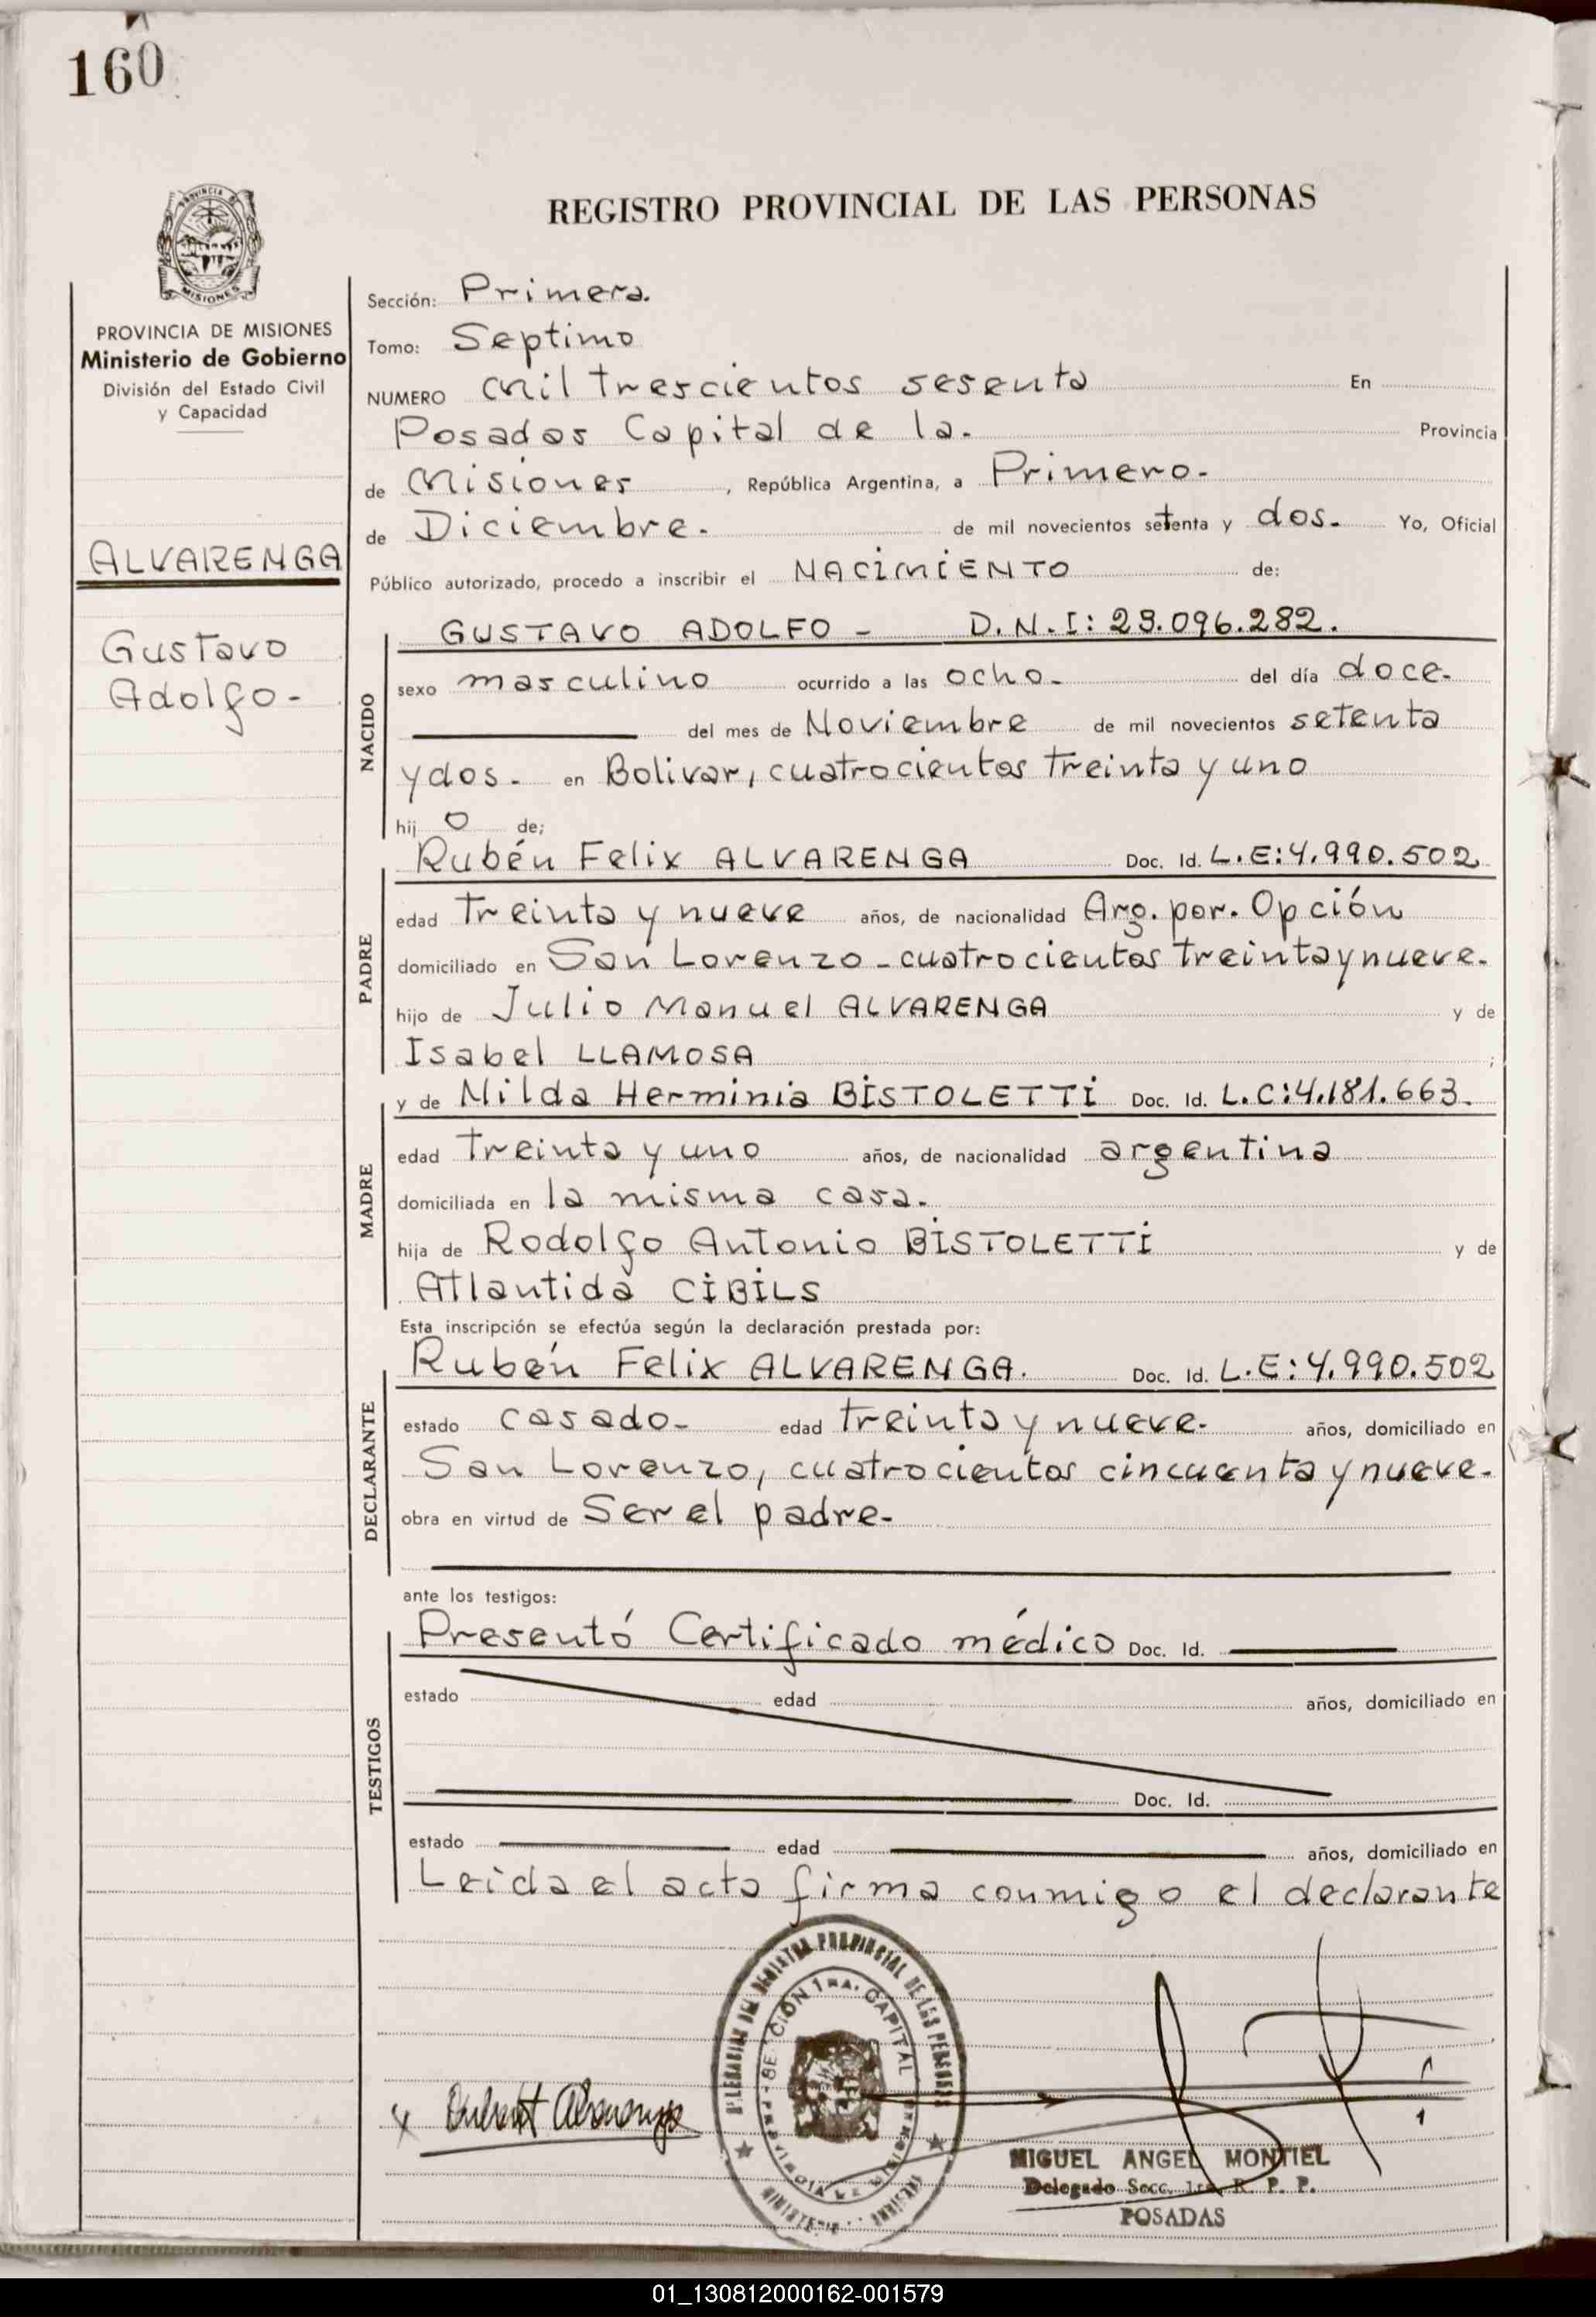 160
REGISTRO PROVINCIAL DE LAS PERSONAS
PROVINCIA DE MISIONES
Ministerio de Gobierno
División del Estado Civil
y Capacidad
ALVARENGA
Gustavo
Adolfo-
Sección: Primera.
Tomo: Septimo
NUMERO mil trescientos sesenta En
Posadas Capital de la. Provincia
de Misiones, República Argentina, a Primero-
de Diciembre. de mil novecientos setenta y dos. Yo, Oficial
Público autorizado, procedo a inscribir el NACIMIENTO de:
NACIDO
GUSTAVO ADOLFO - D.N.I: 23.096.282.
sexo masculino ocurrido a las ocho- del día doce-
del mes de Noviembre de mil novecientos setenta
y dos- en Bolivar, cuatrocientos treinta y uno
hij o de;
PADRE
Rubén Felix ALVARENGA Doc. Id. L.E:4.990.502
edad treinta y nueve años, de nacionalidad Arg. por. Opción
domiciliado en San Lorenzo - cuatrocientos treinta y nueve.
hijo de Julio Manuel ALVARENGA y de
Isabel LLAMOSA ;
MADRE
y de Nilda Herminia BISTOLETTI Doc. Id. L.C:4.181.663.
edad treinta y uno años, de nacionalidad argentina
domiciliada en la misma casa.
hija de Rodolfo Antonio BISTOLETTI y de
Atlantida CIBILS
Esta inscripción se efectúa según la declaración prestada por:
DECLARANTE
Rubén Felix ALVARENGA. Doc. Id. L.E:4.990.502
estado casado- edad treinta y nueve- años, domiciliado en
San Lorenzo, cuatrocientos cincuenta y nueve-
obra en virtud de Ser el padre-
ante los testigos:
TESTIGOS
Presentó Certificado médico Doc. Id.
estado edad años, domiciliado en
Doc. Id.
estado edad años, domiciliado en
Leida el acta firma conmigo el declarante
MIGUEL ANGEL MONTIEL
Delegado Secc. 1ra. R. P. P.
POSADAS
01_130812000162-001579